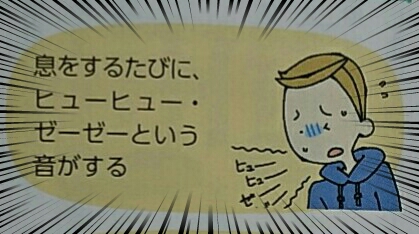 息をするたびに、
ヒューヒュー・
ゼーゼーという
音がする
ヒュー
ヒュー
ゼー